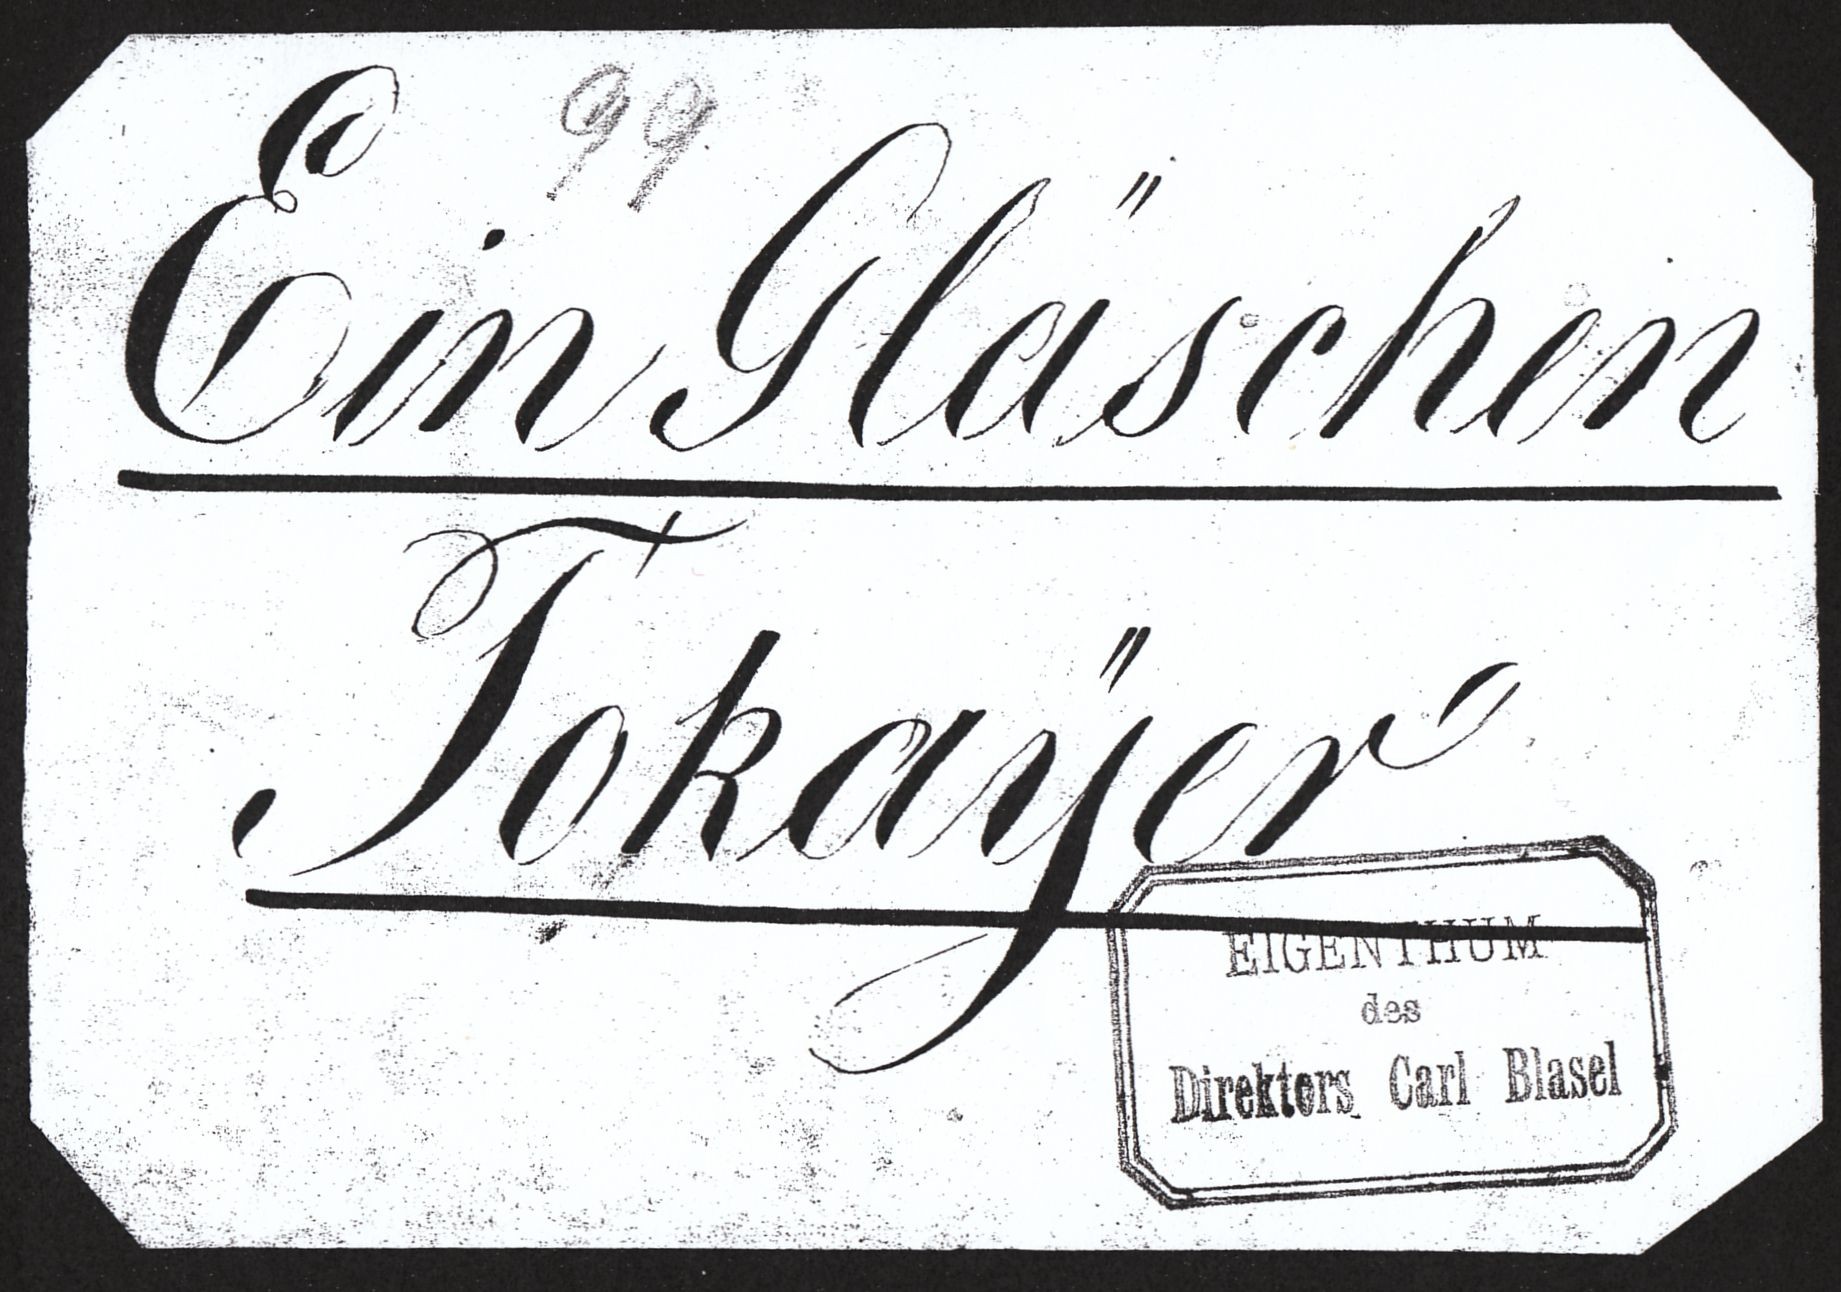 99
Ein Gläschen
Tokaÿer
EIGENTHUM
des
Direktors Carl Blasel